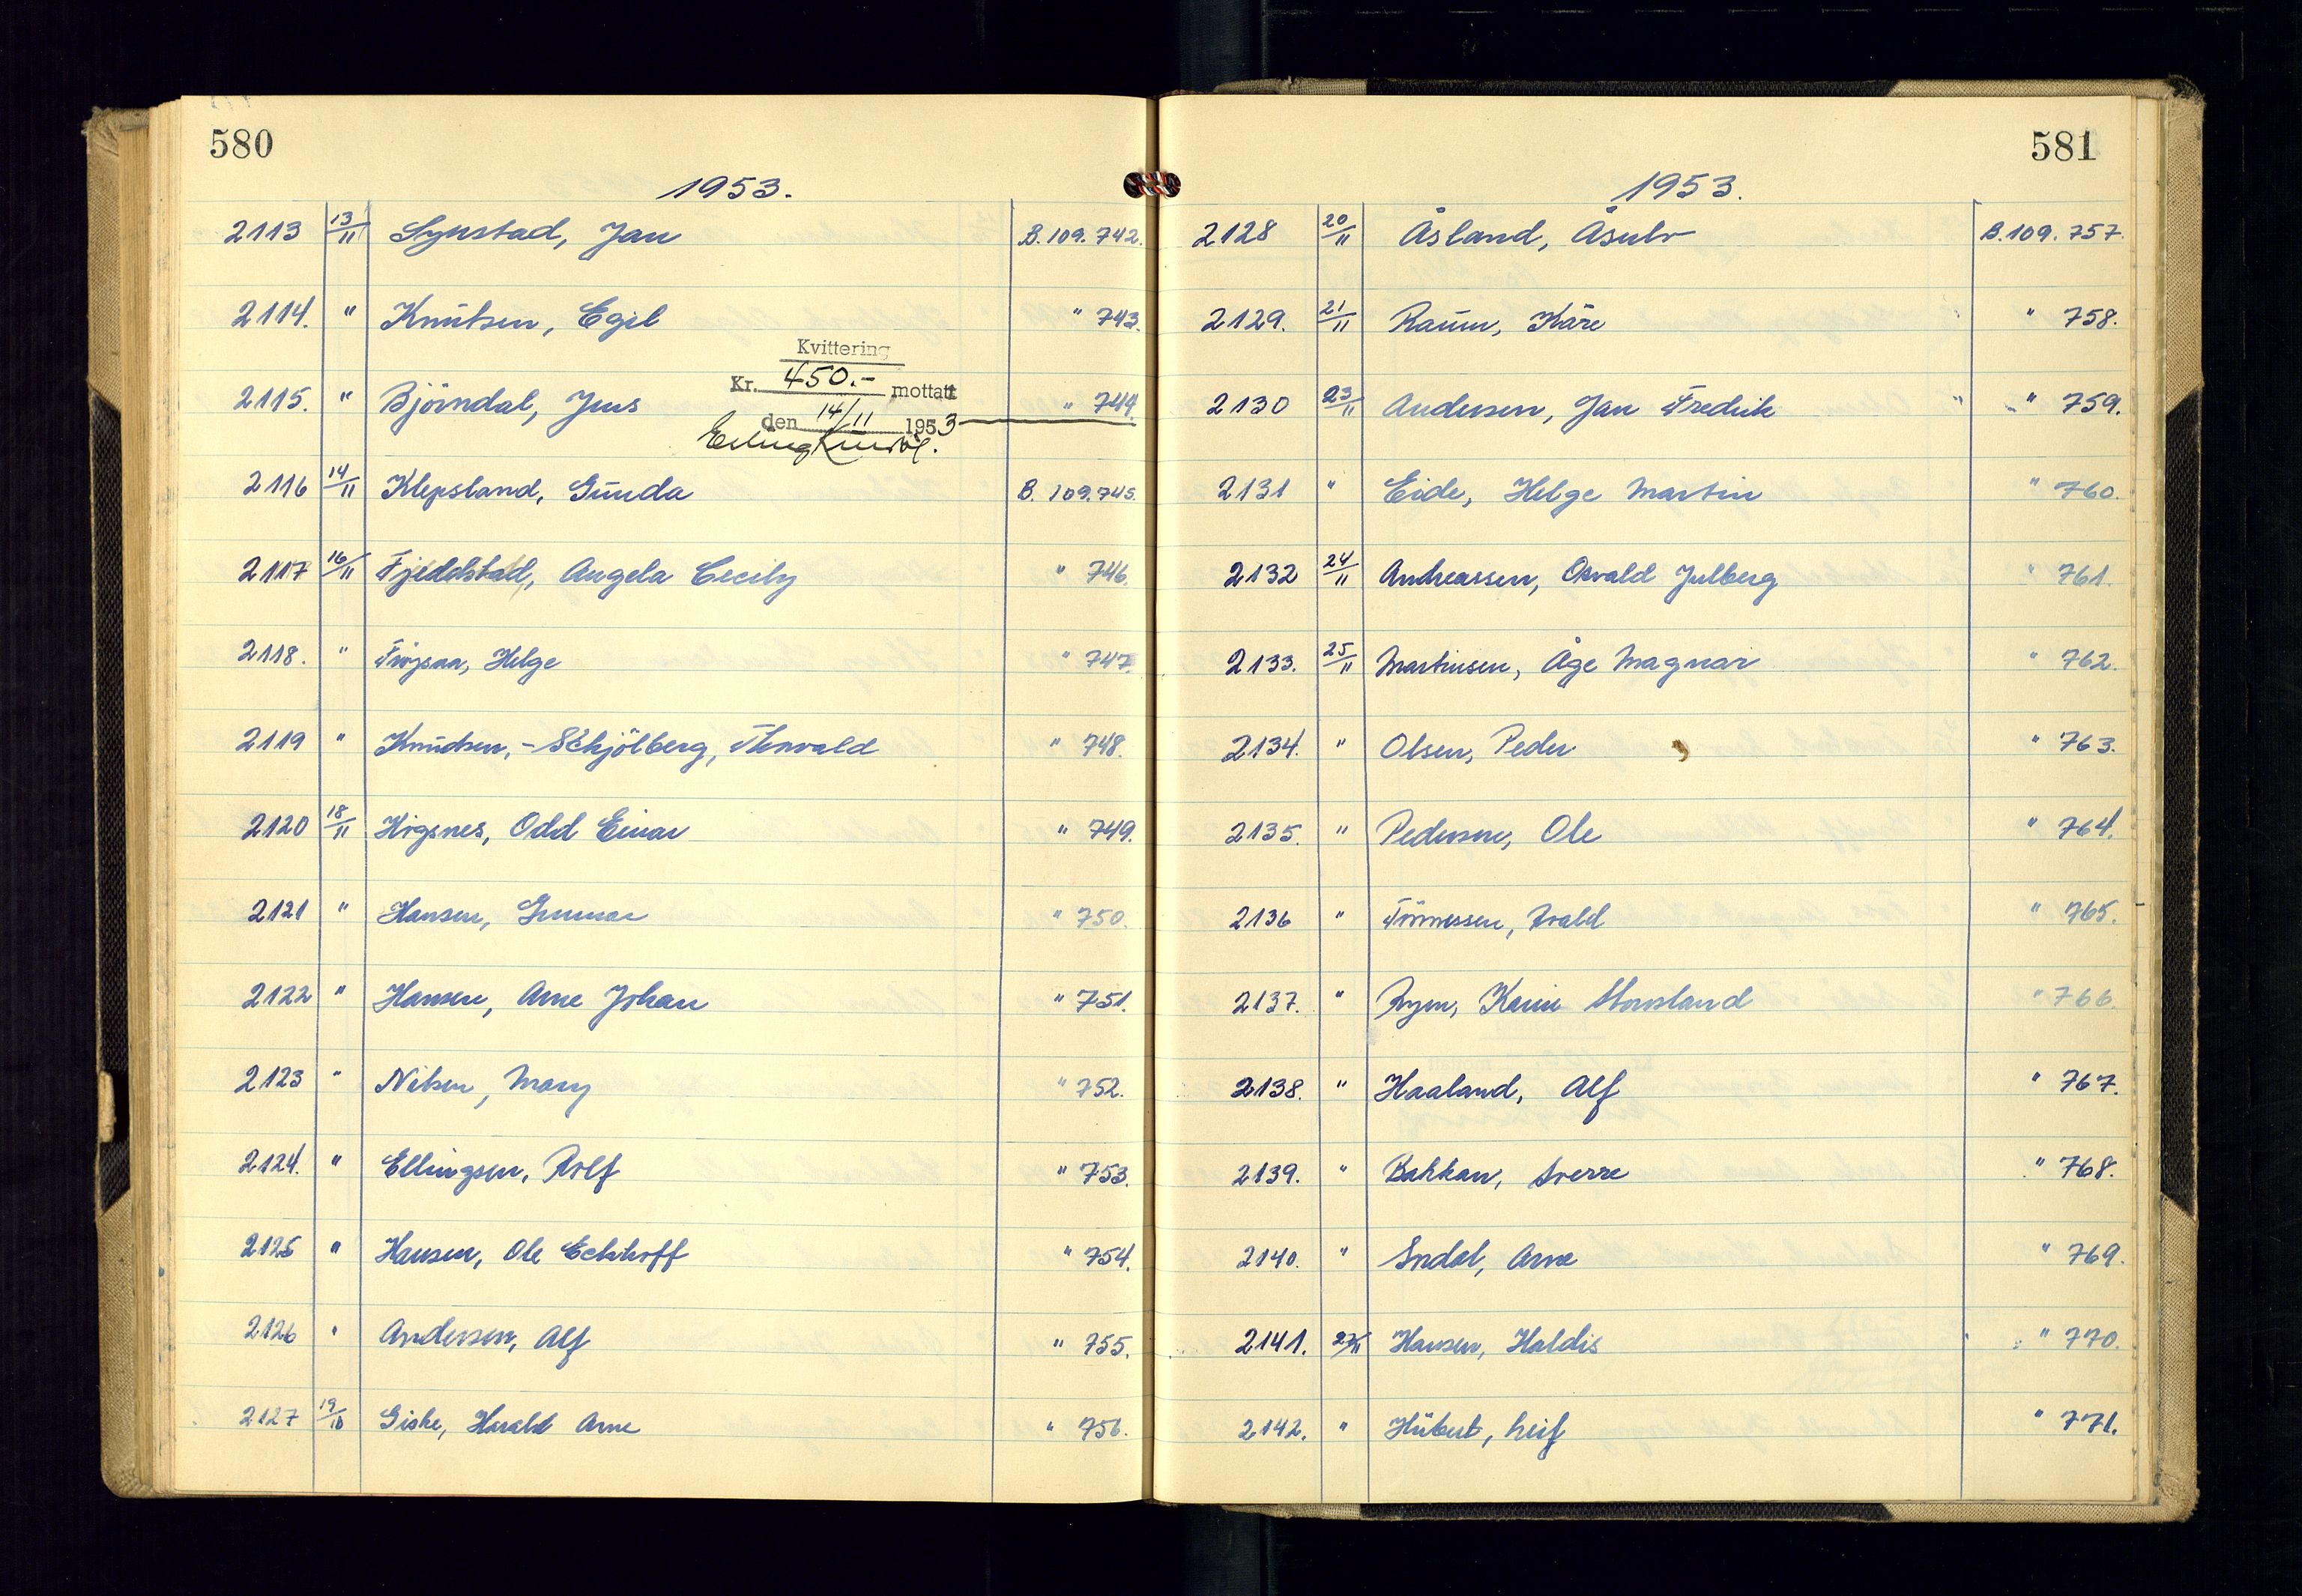 580
1953.
2113 13/11 Synstad, Jan B. 109. 742.
2114. " Knutsen, Egil " 743.
Kvittering
Kr. 450.- mottatt
2115. " Björndal, Jens " 744.
den 14/11 1953
Erling
2116 14/11 Klepsland, Gunda B. 109. 745.
2117 16/11 Fjeldstad, Angela Cecily " 746.
2118. " Frøysaa, Helge " 747.
2119 " Knudsen, - Schjölberg, Thorvald " 748.
2120 18/11 Högsnes, Odd Einar " 749.
2121 " Hansen, Gunnar " 750.
2122 " Hansen, Arne Johan " 751.
2123 " Nilsen, Mary " 752.
2124. " Ellingsen, Rolf " 753.
2125 " Hansen, Ole Eckhoff " 754.
2126 " Andersen, Alf " 755.
2127 19/10 Giske, Harald Arne " 756.
581
1953.
2128 20/11 Åsland, Åsulv B. 109. 757.
2129. 21/11 Raum, Kåre " 758.
2130 23/11 Andersen, Jan Fredrik " 759.
2131 " Eide, Helge Martin " 760.
2132 24/11 Andreassen, Osvald Julberg " 761
2133. 25/11 Martinsen, Åge Magnar " 762.
2134. " Olsen, Peder " 763.
2135. " Pedersen, Ole " 764.
2136 " Tönnessen, Roald " 765.
2137. " Ryen, Karin " 766.
2138. " Haaland, Alf " 767.
2139. " Bakkan, Sverre " 768.
2140. " Indal, Arne " 769.
2141. 27/11 Hansen, Haldis " 770.
2142. " Hübert, Leif " 771.